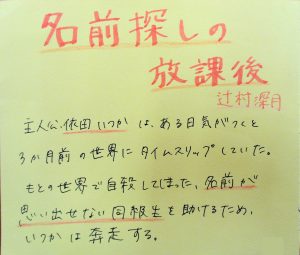 名前探しの
放課後
辻村深月
主人公、依田いつかは、ある日気がつくと
3か月前の世界にタイムスリップしていた。
もとの世界で自殺してしまった、名前が
思い出せない同級生を助けるため、
いつかは奔走する。